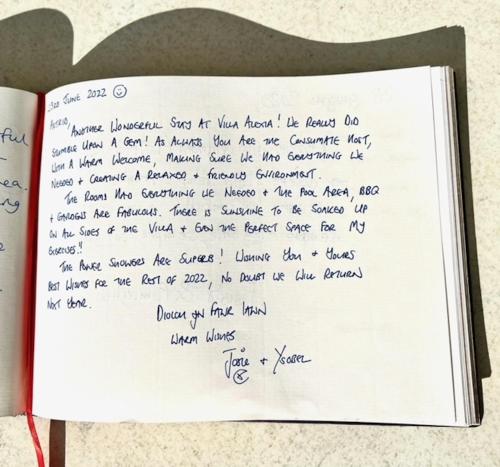 23RD JUNE 2022
ASTRID,
ANOTHER WONDERFUL STAY AT VILLA ALEXIA! WE REALLY DID
STUMBLE UPON A GEM! AS ALWAYS YOU ARE THE CONSUMATE HOST,
WITH A WARM WELCOME, MAKING SURE WE HAD EVERYTHING WE
NEEDED + CREATING A RELAXED + FRIENDLY ENVIRONMENT.
THE ROOMS HAD EVERYTHING WE NEEDED + THE POOL AREA, BBQ
+ GARDENS ARE FABULOUS. THERE IS SUNSHINE TO BE SOAKED UP
ON ALL SIDES OF THE VILLA + EVEN THE PERFECT SPACE FOR MY
EXERCISES!!
THE POWER SHOWERS ARE SUPERB! WISHING YOU + YOURS
BEST WISHES FOR THE REST OF 2022, NO DOUBT WE WILL RETURN
NEXT YEAR.
DIOLCH YN FAWR IAWN
WARM WISHES
Josie + YSOBEL